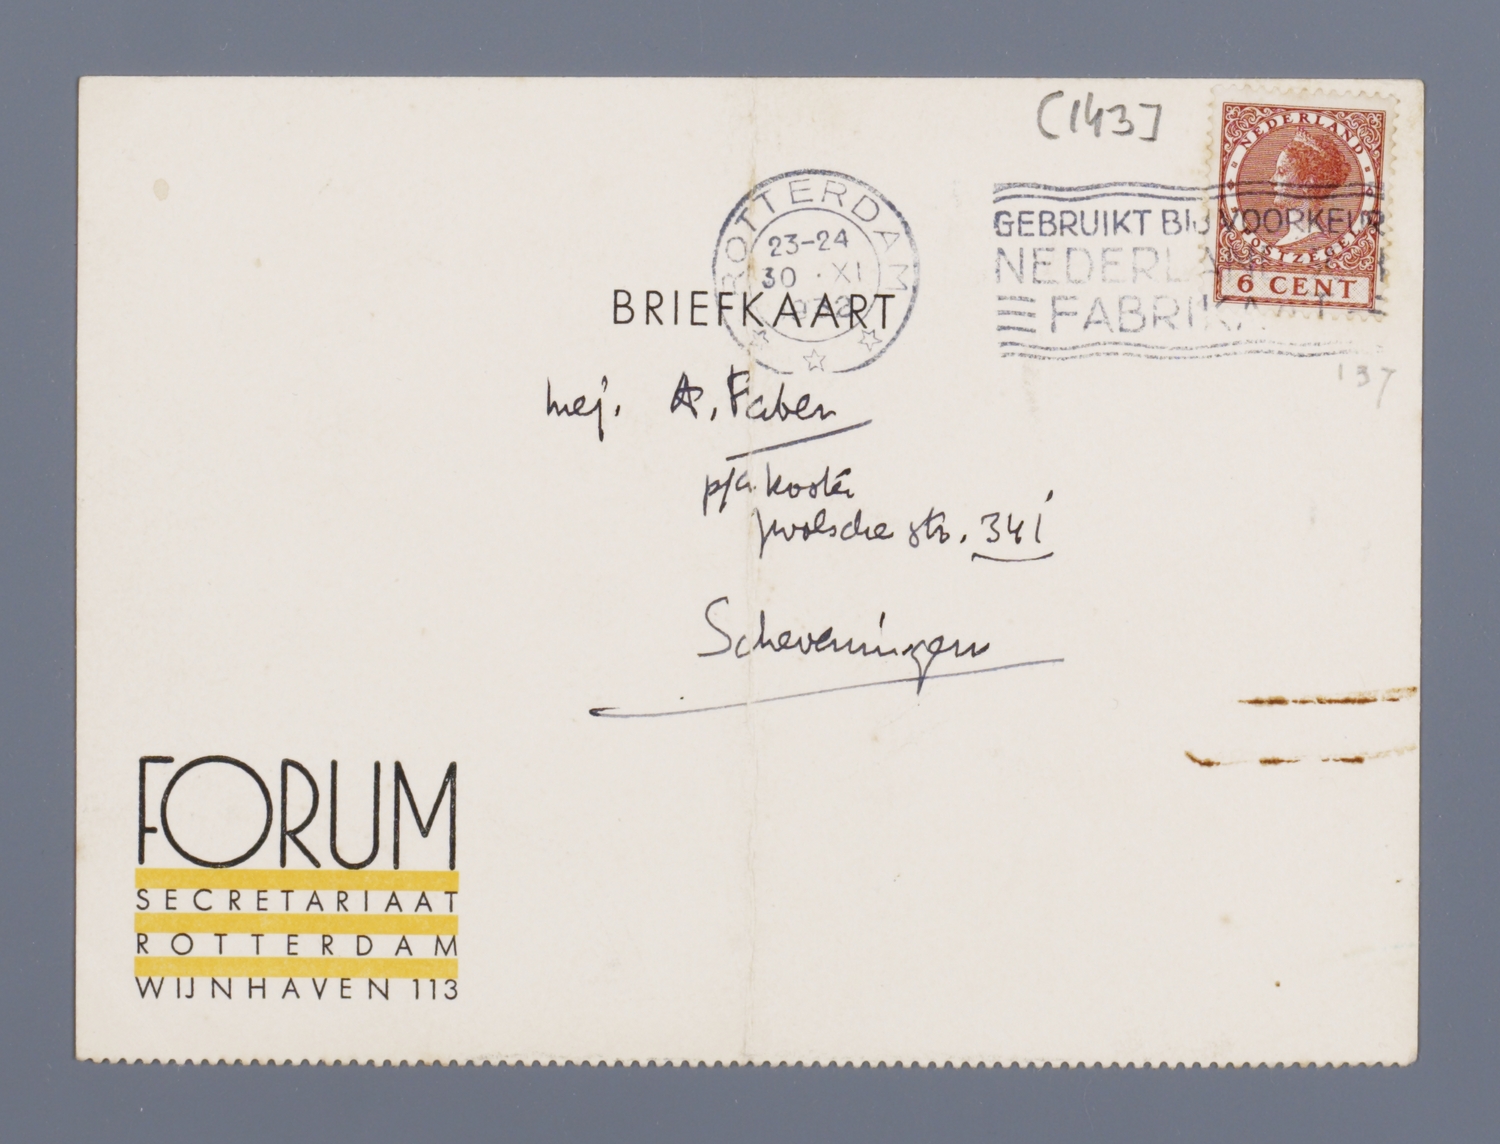 [143]
NEDERLAND
POSTZEGEL
6 CENT
ROTTERDAM
23-24
30 · XI
1932
GEBRUIKT BIJ VOORKEUR
NEDERL
FABRIKA
137
BRIEFKAART
mej. A. Faber
p/a Koster
Zwolsche str. 341
Scheveningen
FORUM
SECRETARIAAT
ROTTERDAM
WIJNHAVEN 113